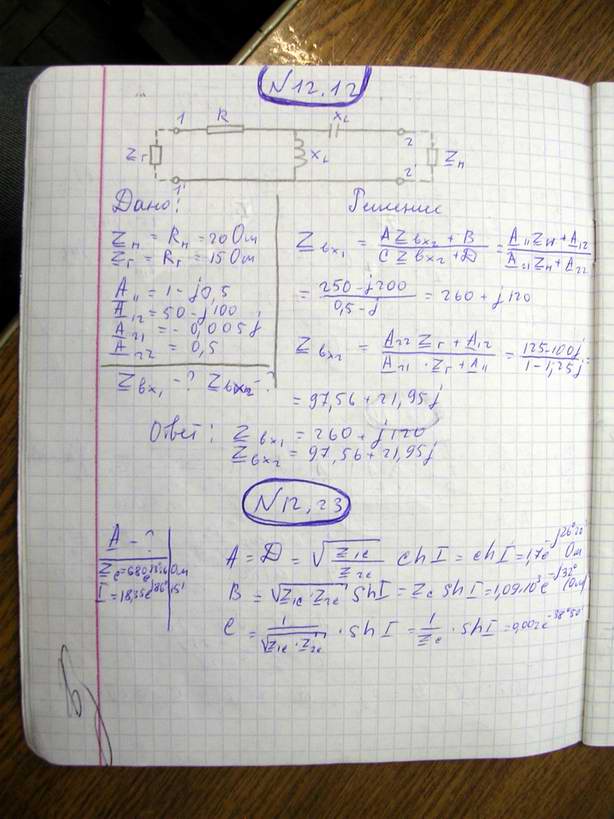 N12.12
1 R XL
Zг XL 2 Zн
1' 2'
Дано: Решение
Zн = Rн = 200 Ом
Zг = Rг = 150 Ом
A11 = 1 - j0,5
A12 = 50 - j100
A21 = - 0,005j
A22 = 0,5
Zвх1 - ? Zвх2 - ?
Zвх1 = (A Zвх2 + B)/(C Zвх2 + D) = (A11 Zн + A12)/(A21 Zн + A22)
= (250 - j200)/(0,5 - j) = 260 + j120
Zвх2 = (A22 Zг + A12)/(A21 · Zг + A11) = (125-100j)/(1-1,25j) =
= 97,56 + 21,95j
Ответ: Zвх1 = 260 + j120
Zвх2 = 97,56 + 21,95j
N12,23
A - ?
A = D = √(Z1c/Z2c) ch Г = ch Г = 1,7e Ом
B = √(Z1c · Z2c) sh Г = Zc sh Г = 1,09·10³e
C = 1/√(Z1c · Z2c) · sh Г = 1/Zc · sh Г = 0,002e